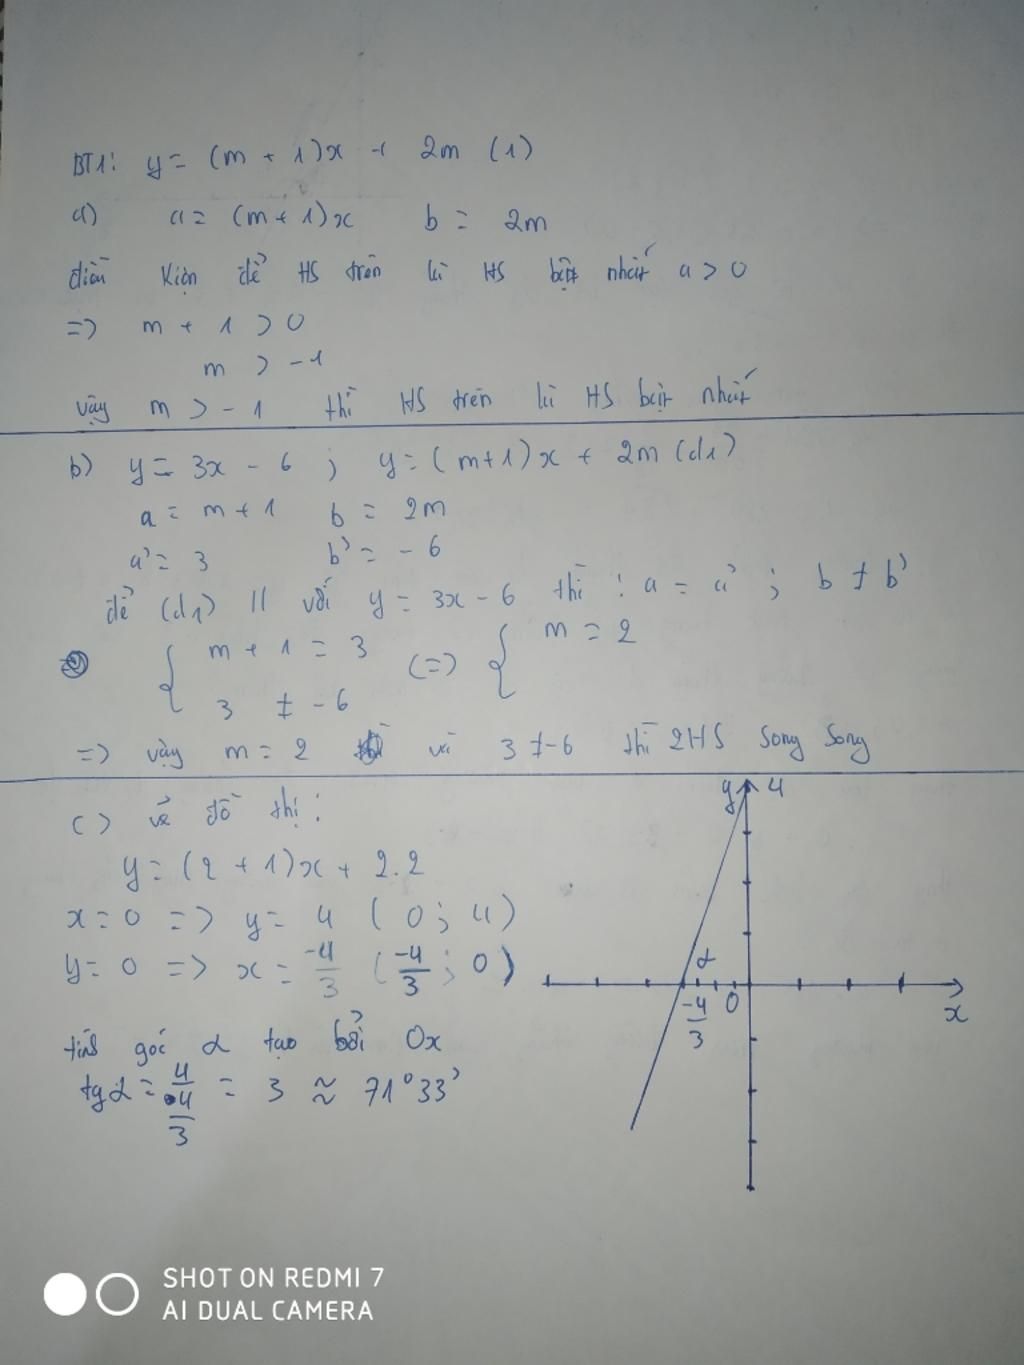 BT1: y = (m + 1)x + 2m (1)
a) a = (m+1)x b = 2m
điều kiện để HS trên là HS bậc nhất a > 0
=> m + 1 > 0
m > -1
vậy m > -1 thì HS trên là HS bậc nhất
b) y = 3x - 6 ; y = (m+1)x + 2m (d1)
a = m+1 b = 2m
a' = 3 b' = -6
để (d1) // với y = 3x - 6 thì : a = a' ; b ≠ b'
{ m + 1 = 3 (=) { m = 2
3 ≠ -6
=> vậy m = 2 và 3 ≠ -6 thì 2HS song song
c) vẽ đồ thị :
y = (2 + 1)x + 2.2
x = 0 => y = 4 (0; 4)
y = 0 => x = -4/3 (-4/3; 0)
tính góc α tạo bởi Ox
tgα = 4/(4/3) = 3 ≈ 71°33'
y 4
α
-4/3 0 x
SHOT ON REDMI 7
AI DUAL CAMERA